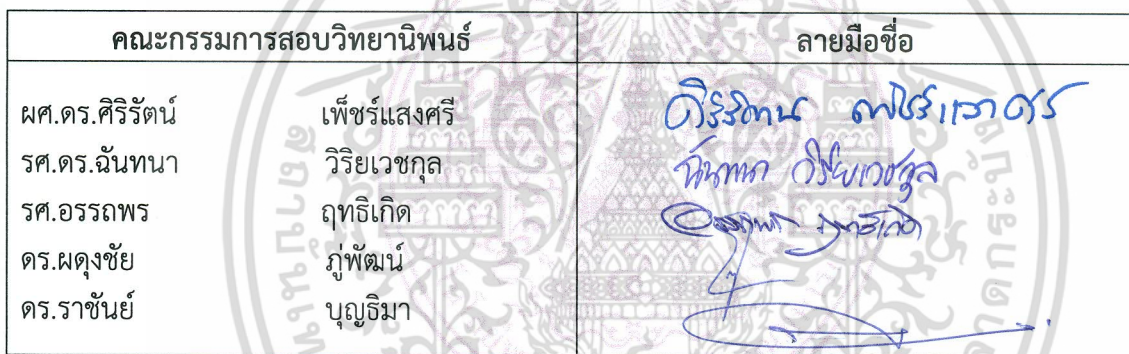 คณะกรรมการสอบวิทยานิพนธ์ ลายมือชื่อ
ผศ.ดร.ศิริรัตน์ เพ็ชร์แสงศรี ศิริรัตน์ เพ็ชร์แสงศรี
รศ.ดร.ฉันทนา วิริยเวชกุล ฉันทนา วิริยเวชกุล
รศ.อรรถพร ฤทธิเกิด อรรถพร ฤทธิเกิด
ดร.ผดุงชัย ภู่พัฒน์
ดร.ราชันย์ บุญธิมา